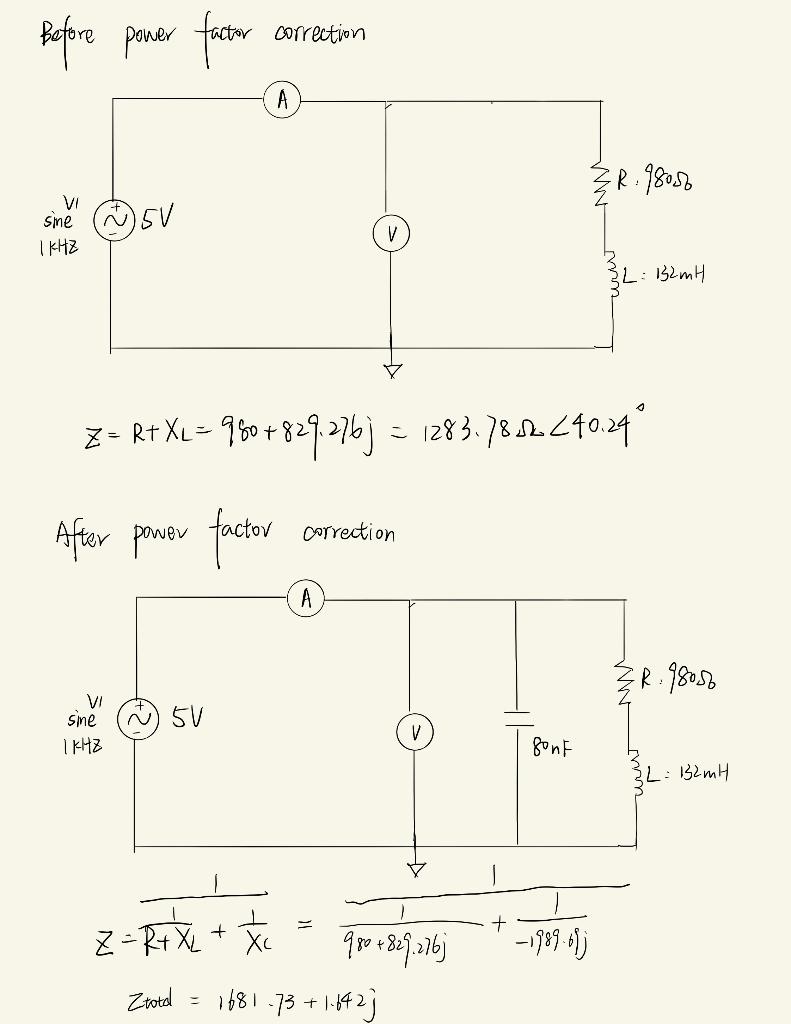 Before power factor correction
A
V1
sine
1KHZ
+
-
5V
V
R: 980Ω
L: 132mH
Z = R+XL = 980+829.276j = 1283.78Ω∠40.24°
After power factor correction
A
V1
sine
1KHZ
+
-
5V
V
80nF
R: 980Ω
L: 132mH
Z = 1/(1/(R+XL) + 1/Xc) = 1/(1/(980+829.276j) + 1/(-1989.69j))
Ztotal = 1681.73+1.642j